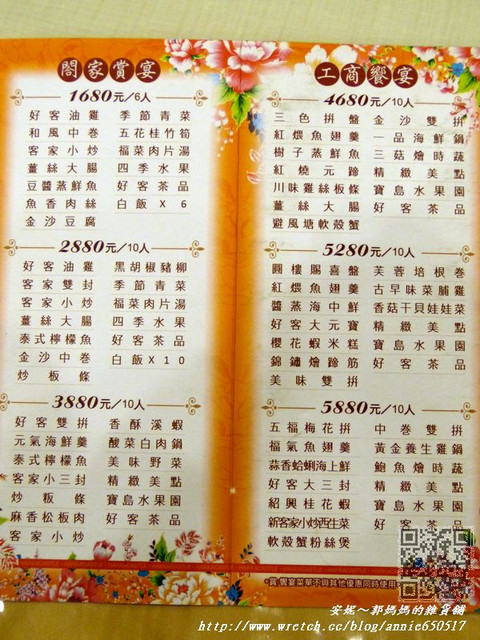 閤家賞宴
1680元/6人
好客油雞 季節青菜
和風中卷 五花桂竹筍
客家小炒 福菜肉片湯
薑絲大腸 四季水果
豆醬蒸鮮魚 好客茶品
魚香肉絲 白飯X6
金沙豆腐
2880元/10人
好客油雞 黑胡椒豬柳
客家雙封 季節青菜
客家小炒 福菜肉片湯
薑絲大腸 四季水果
泰式檸檬魚 好客茶品
金沙中卷 白飯X10
炒粄條
3880元/10人
好客雙拼 香酥溪蝦
元氣海鮮羹 酸菜白肉鍋
泰式檸檬魚 美味野菜
客家小三封 精緻美點
炒粄條 寶島水果園
麻香松板肉 好客茶品
客家小炒
工商饗宴
4680元/10人
三色拼盤 金沙雙拼
紅煨魚翅羹 一品海鮮鍋
樹子蒸鮮魚 三菇燴時蔬
紅燒元蹄 精緻美點
川味雞絲板條 寶島水果園
薑絲大腸 好客茶品
避風塘軟殼蟹
5280元/10人
圓樓賜喜盤 芙蓉培根卷
紅煨魚翅羹 古早味菜脯雞
醬蒸海中鮮 香菇干貝娃娃菜
好客大元寶 精緻美點
櫻花蝦米糕 寶島水果園
錦鏽燴蹄筋 好客茶品
美味雙拼
5880元/10人
五福梅花拼 中卷雙拼
福氣魚翅羹 黃金養生雞鍋
蒜香蛤蜊海上鮮 鮑魚燴時蔬
好客大三封 精緻美點
紹興桂花蝦 寶島水果園
新客家小炒西生菜 好客茶品
軟殼蟹粉絲煲
賞‧饗宴菜單不與其他優惠同時使用
安妮~郭媽媽的雜貨舖
http://www.wretch.cc/blog/annie650517